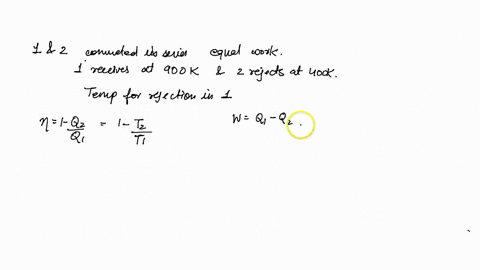 1 & 2 connected in series equal work.
1 receives at 900K & 2 rejects at 400K.
Temp for rejection in 1
η = 1 - Q2/Q1 = 1 - T2/T1 W = Q1 - Q2.